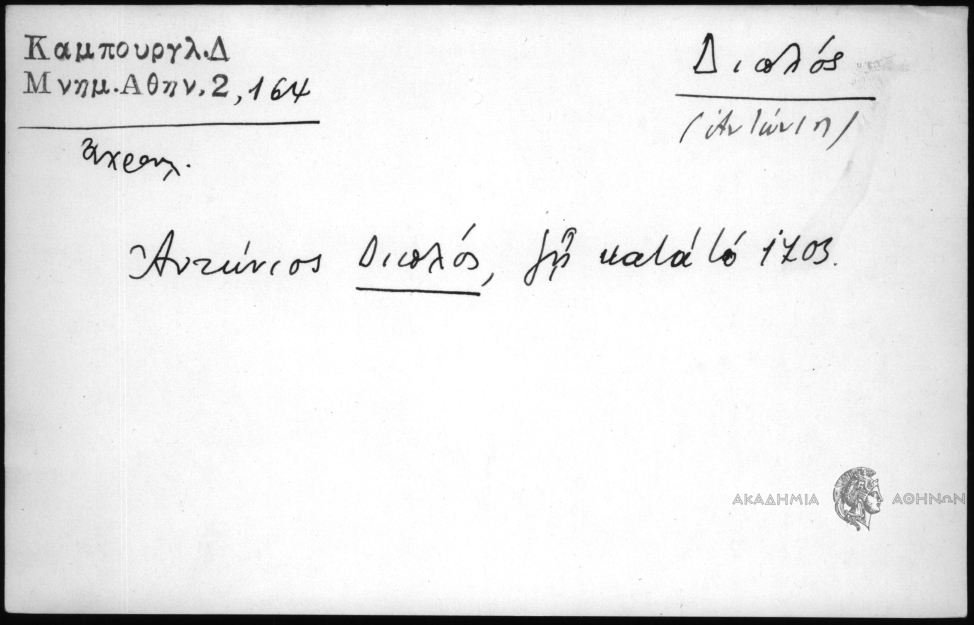 Καμπουργλ.Δ
Μνημ.Αθην.2,164
Διπλός
(Ἀντώνιος)
Ἀχρον.
Ἀντώνιος Διπλός, ζῇ κατὰ τό 1703.
ΑΚΑΔΗΜΙΑ ΑΘΗΝΩΝ